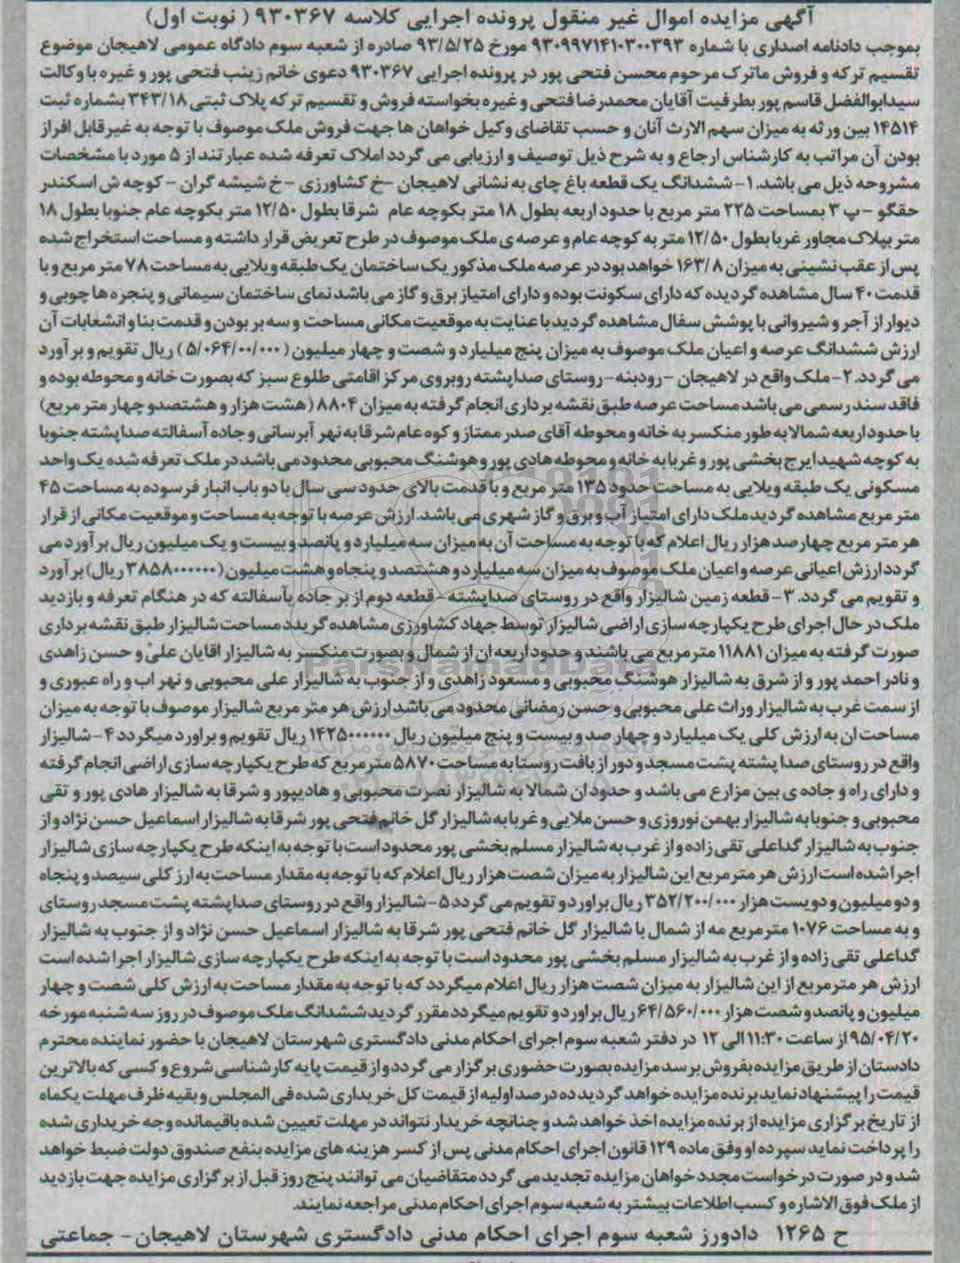 آگهی مزایده اموال غیر منقول پرونده اجرایی کلاسه ۹۳۰۳۶۷ ( نوبت اول)
بموجب دادنامه اصداری با شماره ۹۳۰۹۹۷۱۴۱۰۳۰۰۳۹۳ مورخ ۹۳/۵/۲۵ صادره از شعبه سوم دادگاه عمومی لاهیجان موضوع
تقسیم ترکه و فروش ماترک مرحوم محسن فتحی پور در پرونده اجرایی ۹۳۰۳۶۷ دعوی خانم زینب فتحی پور و غیره با وکالت
سیدابوالفضل قاسم پور بطرفیت آقایان محمدرضا فتحی و غیره بخواسته فروش و تقسیم ترکه پلاک ثبتی ۳۴۳/۱۸ بشماره ثبت
۱۴۵۱۴ بین ورثه به میزان سهم الارث آنان و حسب تقاضای وکیل خواهان ها جهت فروش ملک موصوف با توجه به غیرقابل افراز
بودن آن مراتب به کارشناس ارجاع و به شرح ذیل توصیف و ارزیابی می گردد املاک تعرفه شده عبارتند از ۵ مورد با مشخصات
مشروحه ذیل می باشد. ۱- ششدانگ یک قطعه باغ چای به نشانی لاهیجان -خ کشاورزی -خ شیشه گران - کوچه ش اسکندر
حقگو - پ ۳ بمساحت ۲۲۵ متر مربع با حدود اربعه بطول ۱۸ متر بکوچه عام شرقا بطول ۱۲/۵۰ متر بکوچه عام جنوبا بطول ۱۸
متر بپلاک مجاور غربا بطول ۱۲/۵۰ متر به کوچه عام و عرصه ی ملک موصوف در طرح تعریض قرار داشته و مساحت استخراج شده
پس از عقب نشینی به میزان ۱۶۳/۸ خواهد بود در عرصه ملک مذکور یک ساختمان یک طبقه ویلایی به مساحت ۷۸ متر مربع و با
قدمت ۴۰ سال مشاهده گردیده که دارای سکونت بوده و دارای امتیاز برق و گاز می باشد نمای ساختمان سیمانی و پنجره ها چوبی و
دیوار از آجر و شیروانی با پوشش سفال مشاهده گردید با عنایت به موقعیت مکانی مساحت و سه بر بودن و قدمت بنا و انشعابات آن
ارزش ششدانگ عرصه و اعیان ملک موصوف به میزان پنج میلیارد و شصت و چهار میلیون ( ۵/۰۶۴/۰۰/۰۰۰) ریال تقویم و برآورد
می گردد. ۲- ملک واقع در لاهیجان -رودبنه- روستای صداپشته روبروی مرکز اقامتی طلوع سبز که بصورت خانه و محوطه بوده و
فاقد سند رسمی می باشد مساحت عرصه طبق نقشه برداری انجام گرفته به میزان ۸۸۰۴ (هشت هزار و هشتصدو چهار متر مربع)
با حدود اربعه شمالا به طور منکسر به خانه و محوطه آقای صدر ممتاز و کوه عام شرقا به نهر آبرسانی و جاده آسفالته صداپشته جنوبا
به کوچه شهید ایرج بخشی پور و غربا به خانه و محوطه هادی پور و هوشنگ محبوبی محدود می باشد در ملک تعرفه شده یک واحد
مسکونی یک طبقه ویلایی به مساحت حدود ۱۳۵ متر مربع و با قدمت بالای حدود سی سال با دو باب انبار فرسوده به مساحت ۴۵
متر مربع مشاهده گردید ملک دارای امتیاز آب و برق و گاز شهری می باشد. ارزش عرصه با توجه به مساحت و موقعیت مکانی از قرار
هر متر مربع چهارصد هزار ریال اعلام که با توجه به مساحت آن به میزان سه میلیارد و پانصد و بیست و یک میلیون ریال برآورد می
گردد ارزش اعیانی عرصه و اعیان ملک موصوف به میزان سه میلیارد و هشتصد و پنجاه و هشت میلیون ( ۳۸۵۸۰۰۰۰۰۰ ریال) برآورد
و تقویم می گردد. ۳- قطعه زمین شالیزار واقع در روستای صداپشته - قطعه دوم از بر جاده آسفالته که در هنگام تعرفه و بازدید
ملک در حال اجرای طرح یکپارچه سازی اراضی شالیزار توسط جهاد کشاورزی مشاهده گردید مساحت شالیزار طبق نقشه برداری
صورت گرفته به میزان ۱۱۸۸۱ متر مربع می باشند و حدود اربعه ان از شمال و بصورت منکسر به شالیزار اقایان علی و حسن زاهدی
و نادر احمد پور و از شرق به شالیزار هوشنگ محبوبی و مسعود زاهدی و از جنوب به شالیزار علی محبوبی و نهر اب و راه عبوری و
از سمت غرب به شالیزار وراث علی محبوبی و حسن رمضانی محدود می باشد ارزش هر متر مربع شالیزار موصوف با توجه به میزان
مساحت ان به ارزش کلی یک میلیارد و چهار صد و بیست و پنج میلیون ریال ۱۴۲۵۰۰۰۰۰۰ ریال تقویم و براورد میگردد ۴- شالیزار
واقع در روستای صدا پشته پشت مسجد و دور از بافت روستا به مساحت ۵۸۷۰ متر مربع که طرح یکپارچه سازی اراضی انجام گرفته
و دارای راه و جاده ی بین مزارع می باشد و حدود ان شمالا به شالیزار نصرت محبوبی و هادیپور و شرقا به شالیزار هادی پور و تقی
محبوبی و جنوبا به شالیزار بهمن نوروزی و حسن ملایی و غربا به شالیزار گل خانم فتحی پور شرقا به شالیزار اسماعیل حسن نژاد و از
جنوب به شالیزار گداعلی تقی زاده و از غرب به شالیزار مسلم بخشی پور محدود است با توجه به اینکه طرح یکپارچه سازی شالیزار
اجرا شده است ارزش هر متر مربع این شالیزار به میزان شصت هزار ریال اعلام که با توجه به مقدار مساحت به ارز کلی سیصد و پنجاه
و دو میلیون و دویست هزار ۳۵۲/۲۰۰/۰۰۰ ریال براورد و تقویم می گردد ۵- شالیزار واقع در روستای صداپشته پشت مسجد روستای
و به مساحت ۱۰۷۶ متر مربع مه از شمال با شالیزار گل خانم فتحی پور شرقا به شالیزار اسماعیل حسن نژاد و از جنوب به شالیزار
گداعلی تقی زاده و از غرب به شالیزار مسلم بخشی پور محدود است با توجه به اینکه طرح یکپارچه سازی شالیزار اجرا شده است
ارزش هر متر مربع از این شالیزار به میزان شصت هزار ریال اعلام میگردد که با توجه به مقدار مساحت به ارزش کلی شصت و چهار
میلیون و پانصد و شصت هزار ۶۴/۵۶۰/۰۰۰ ریال براورد و تقویم میگردد مقرر گردید ششدانگ ملک موصوف در روز سه شنبه مورخه
۹۵/۰۴/۲۰ از ساعت ۱۱:۳۰ الی ۱۲ در دفتر شعبه سوم اجرای احکام مدنی دادگستری شهرستان لاهیجان با حضور نماینده محترم
دادستان از طریق مزایده بفروش برسد مزایده بصورت حضوری برگزار می گردد و از قیمت پایه کارشناسی شروع و کسی که بالاترین
قیمت را پیشنهاد نماید برنده مزایده خواهد گردید ده درصد اولیه از قیمت کل خریداری شده فی المجلس و بقیه ظرف مهلت یکماه
از تاریخ برگزاری مزایده از برنده مزایده اخذ خواهد شد و چنانچه خریدار نتواند در مهلت تعیین شده باقیمانده وجه خریداری شده
را پرداخت نماید سپرده او وفق ماده ۱۲۹ قانون اجرای احکام مدنی پس از کسر هزینه های مزایده بنفع صندوق دولت ضبط خواهد
شد و در صورت درخواست مجدد خواهان مزایده تجدید می گردد متقاضیان می توانند پنج روز قبل از برگزاری مزایده جهت بازدید
از ملک فوق الاشاره و کسب اطلاعات بیشتر به شعبه سوم اجرای احکام مدنی مراجعه نمایند.
ح ۱۲۶۵ دادورز شعبه سوم اجرای احکام مدنی دادگستری شهرستان لاهیجان - جماعتی
ParsNamadData